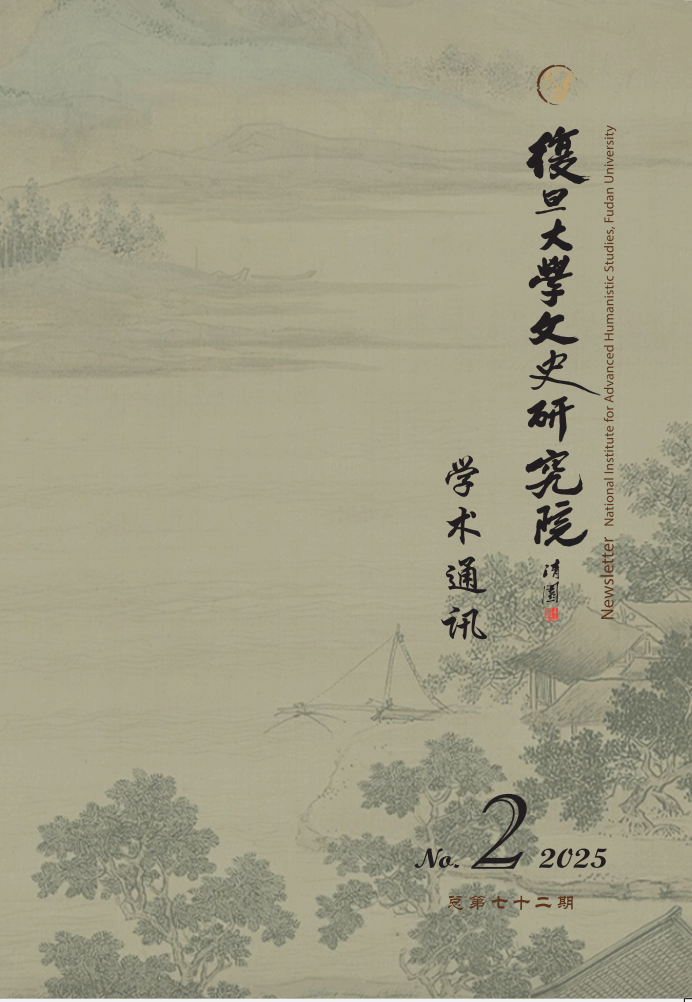 復旦大學文史研究院
清園
学术通讯
Newsletter National Institute for Advanced Humanistic Studies, Fudan University
No. 2 2025
总第七十二期